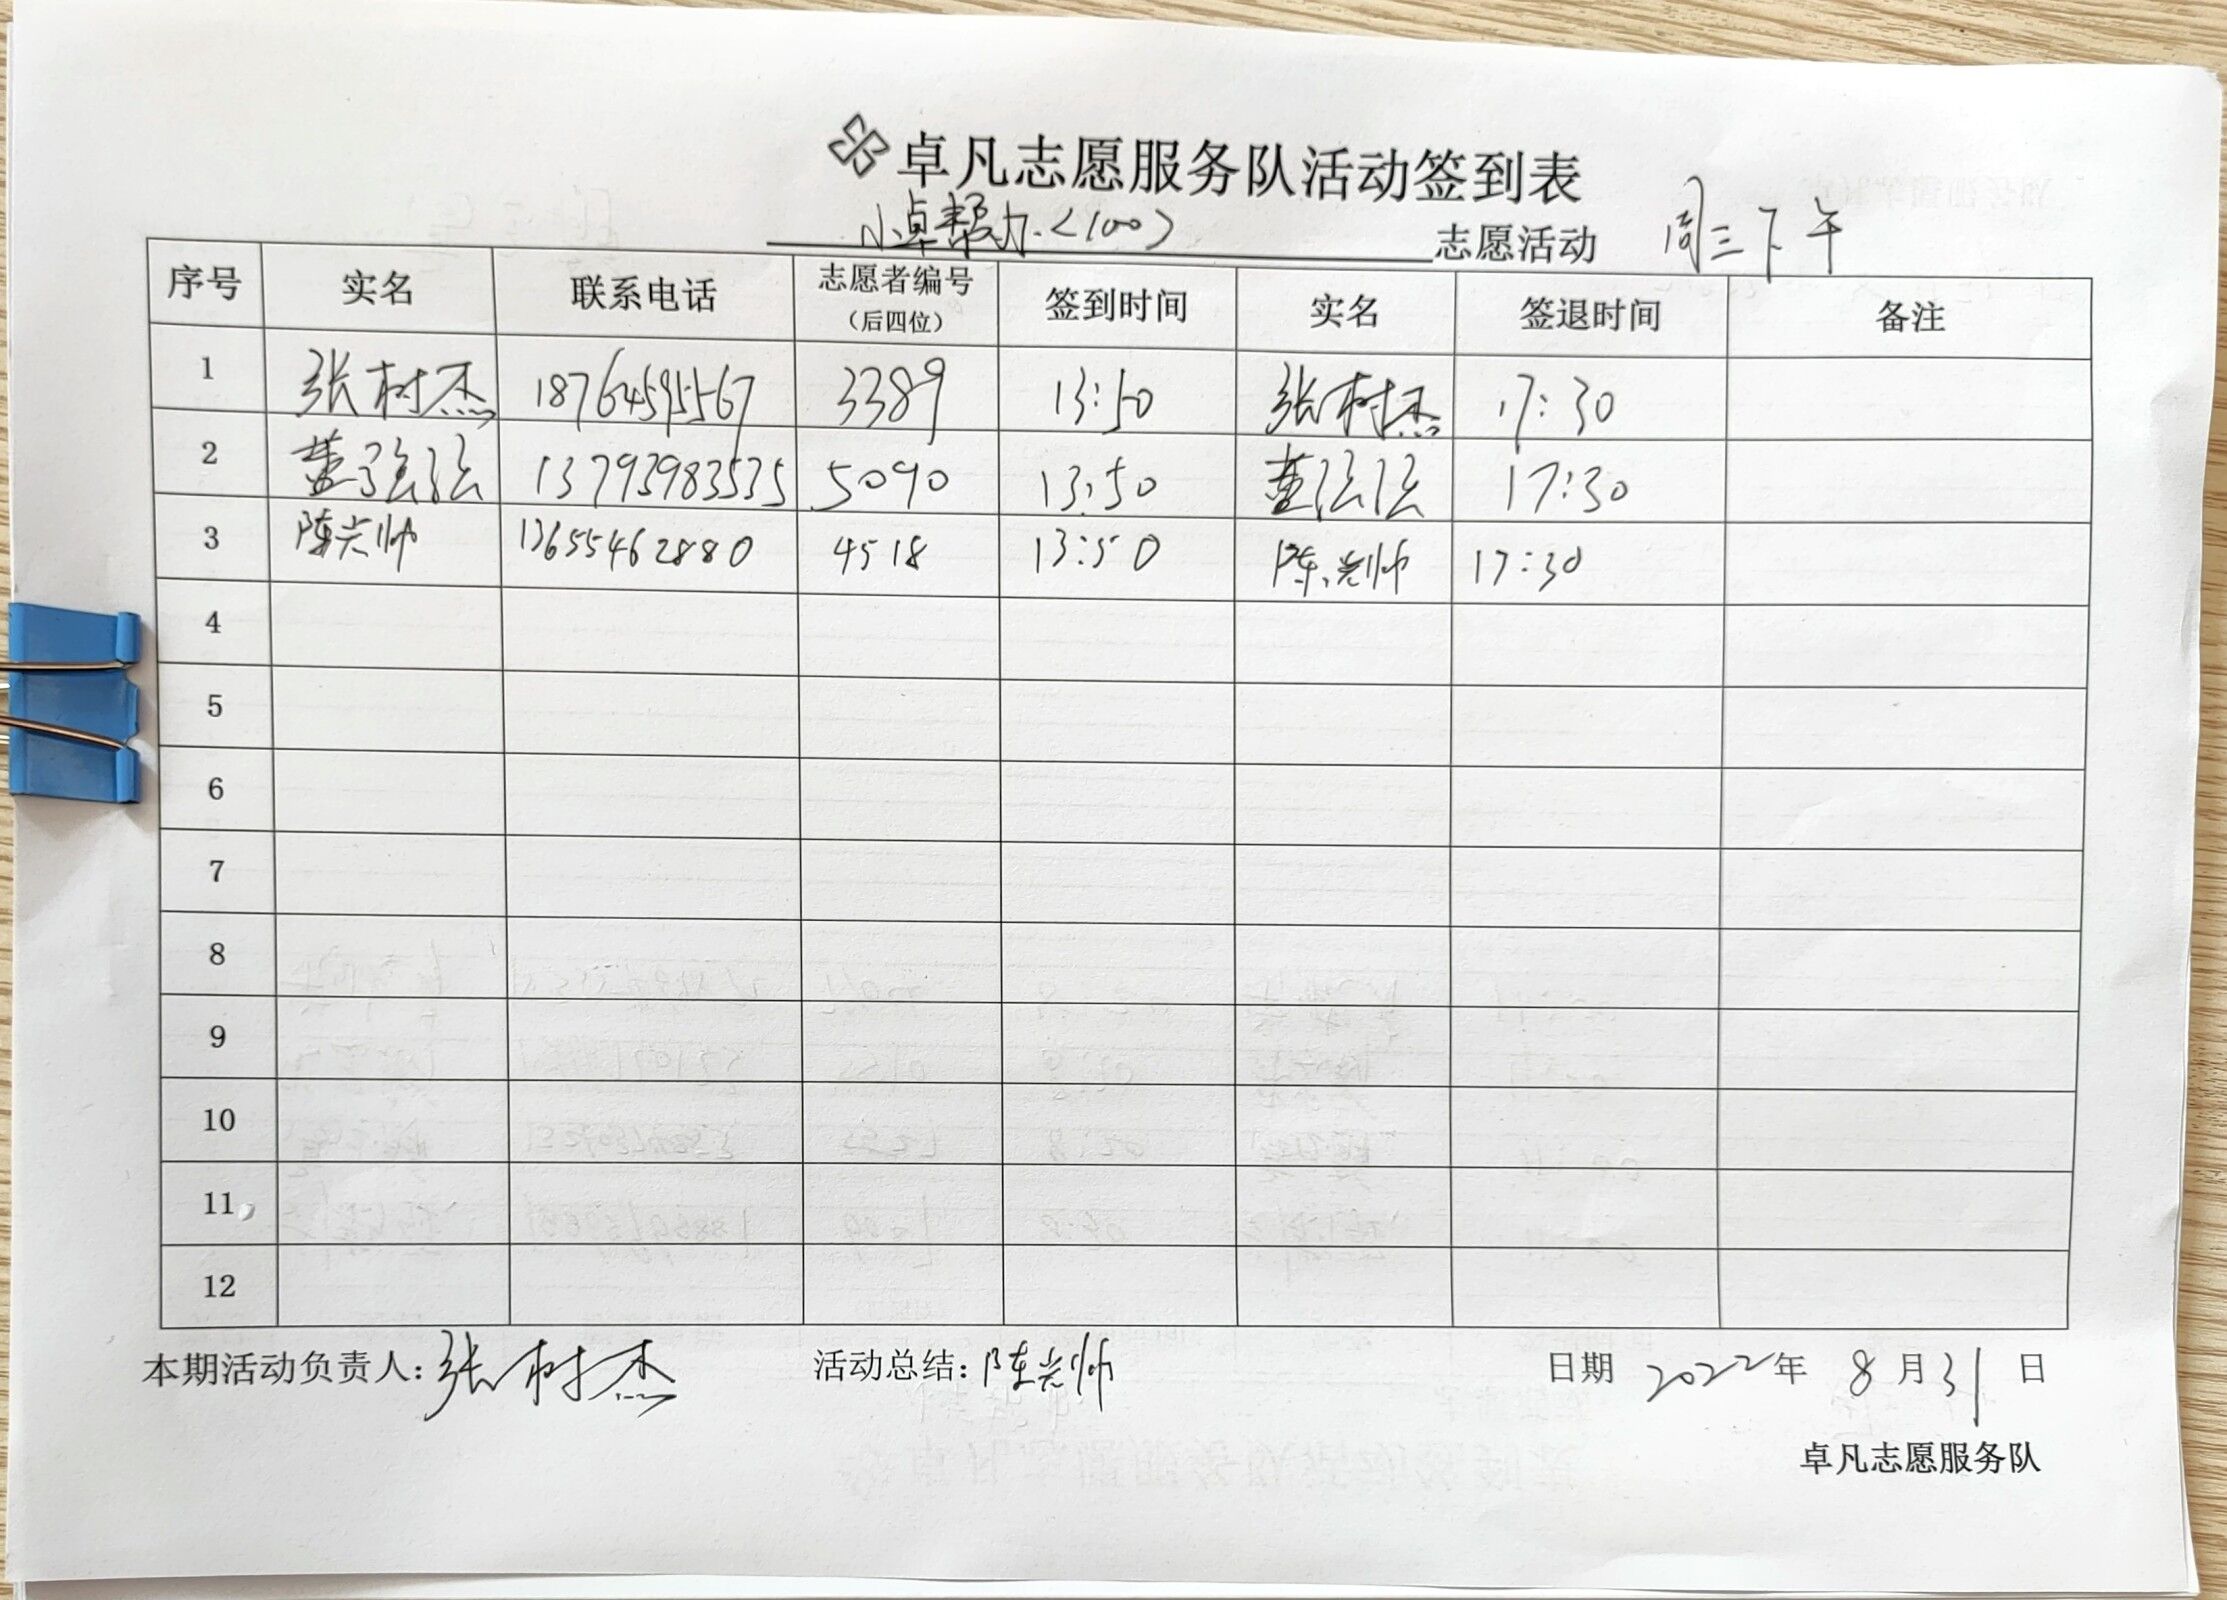 卓凡志愿服务队活动签到表
小卓帮办<100> 志愿活动 周三下午
序号 实名 联系电话 志愿者编号（后四位） 签到时间 实名 签退时间 备注
1 张树杰 18764595567 3389 13:50 张树杰 17:30
2 董泓泓 13793983535 5090 13:50 董泓泓 17:30
3 陈兴帅 13655462880 4518 13:50 陈兴帅 17:30
4
5
6
7
8
9
10
11
12
本期活动负责人：张树杰 活动总结：陈兴帅 日期 2022年 8月31日
卓凡志愿服务队